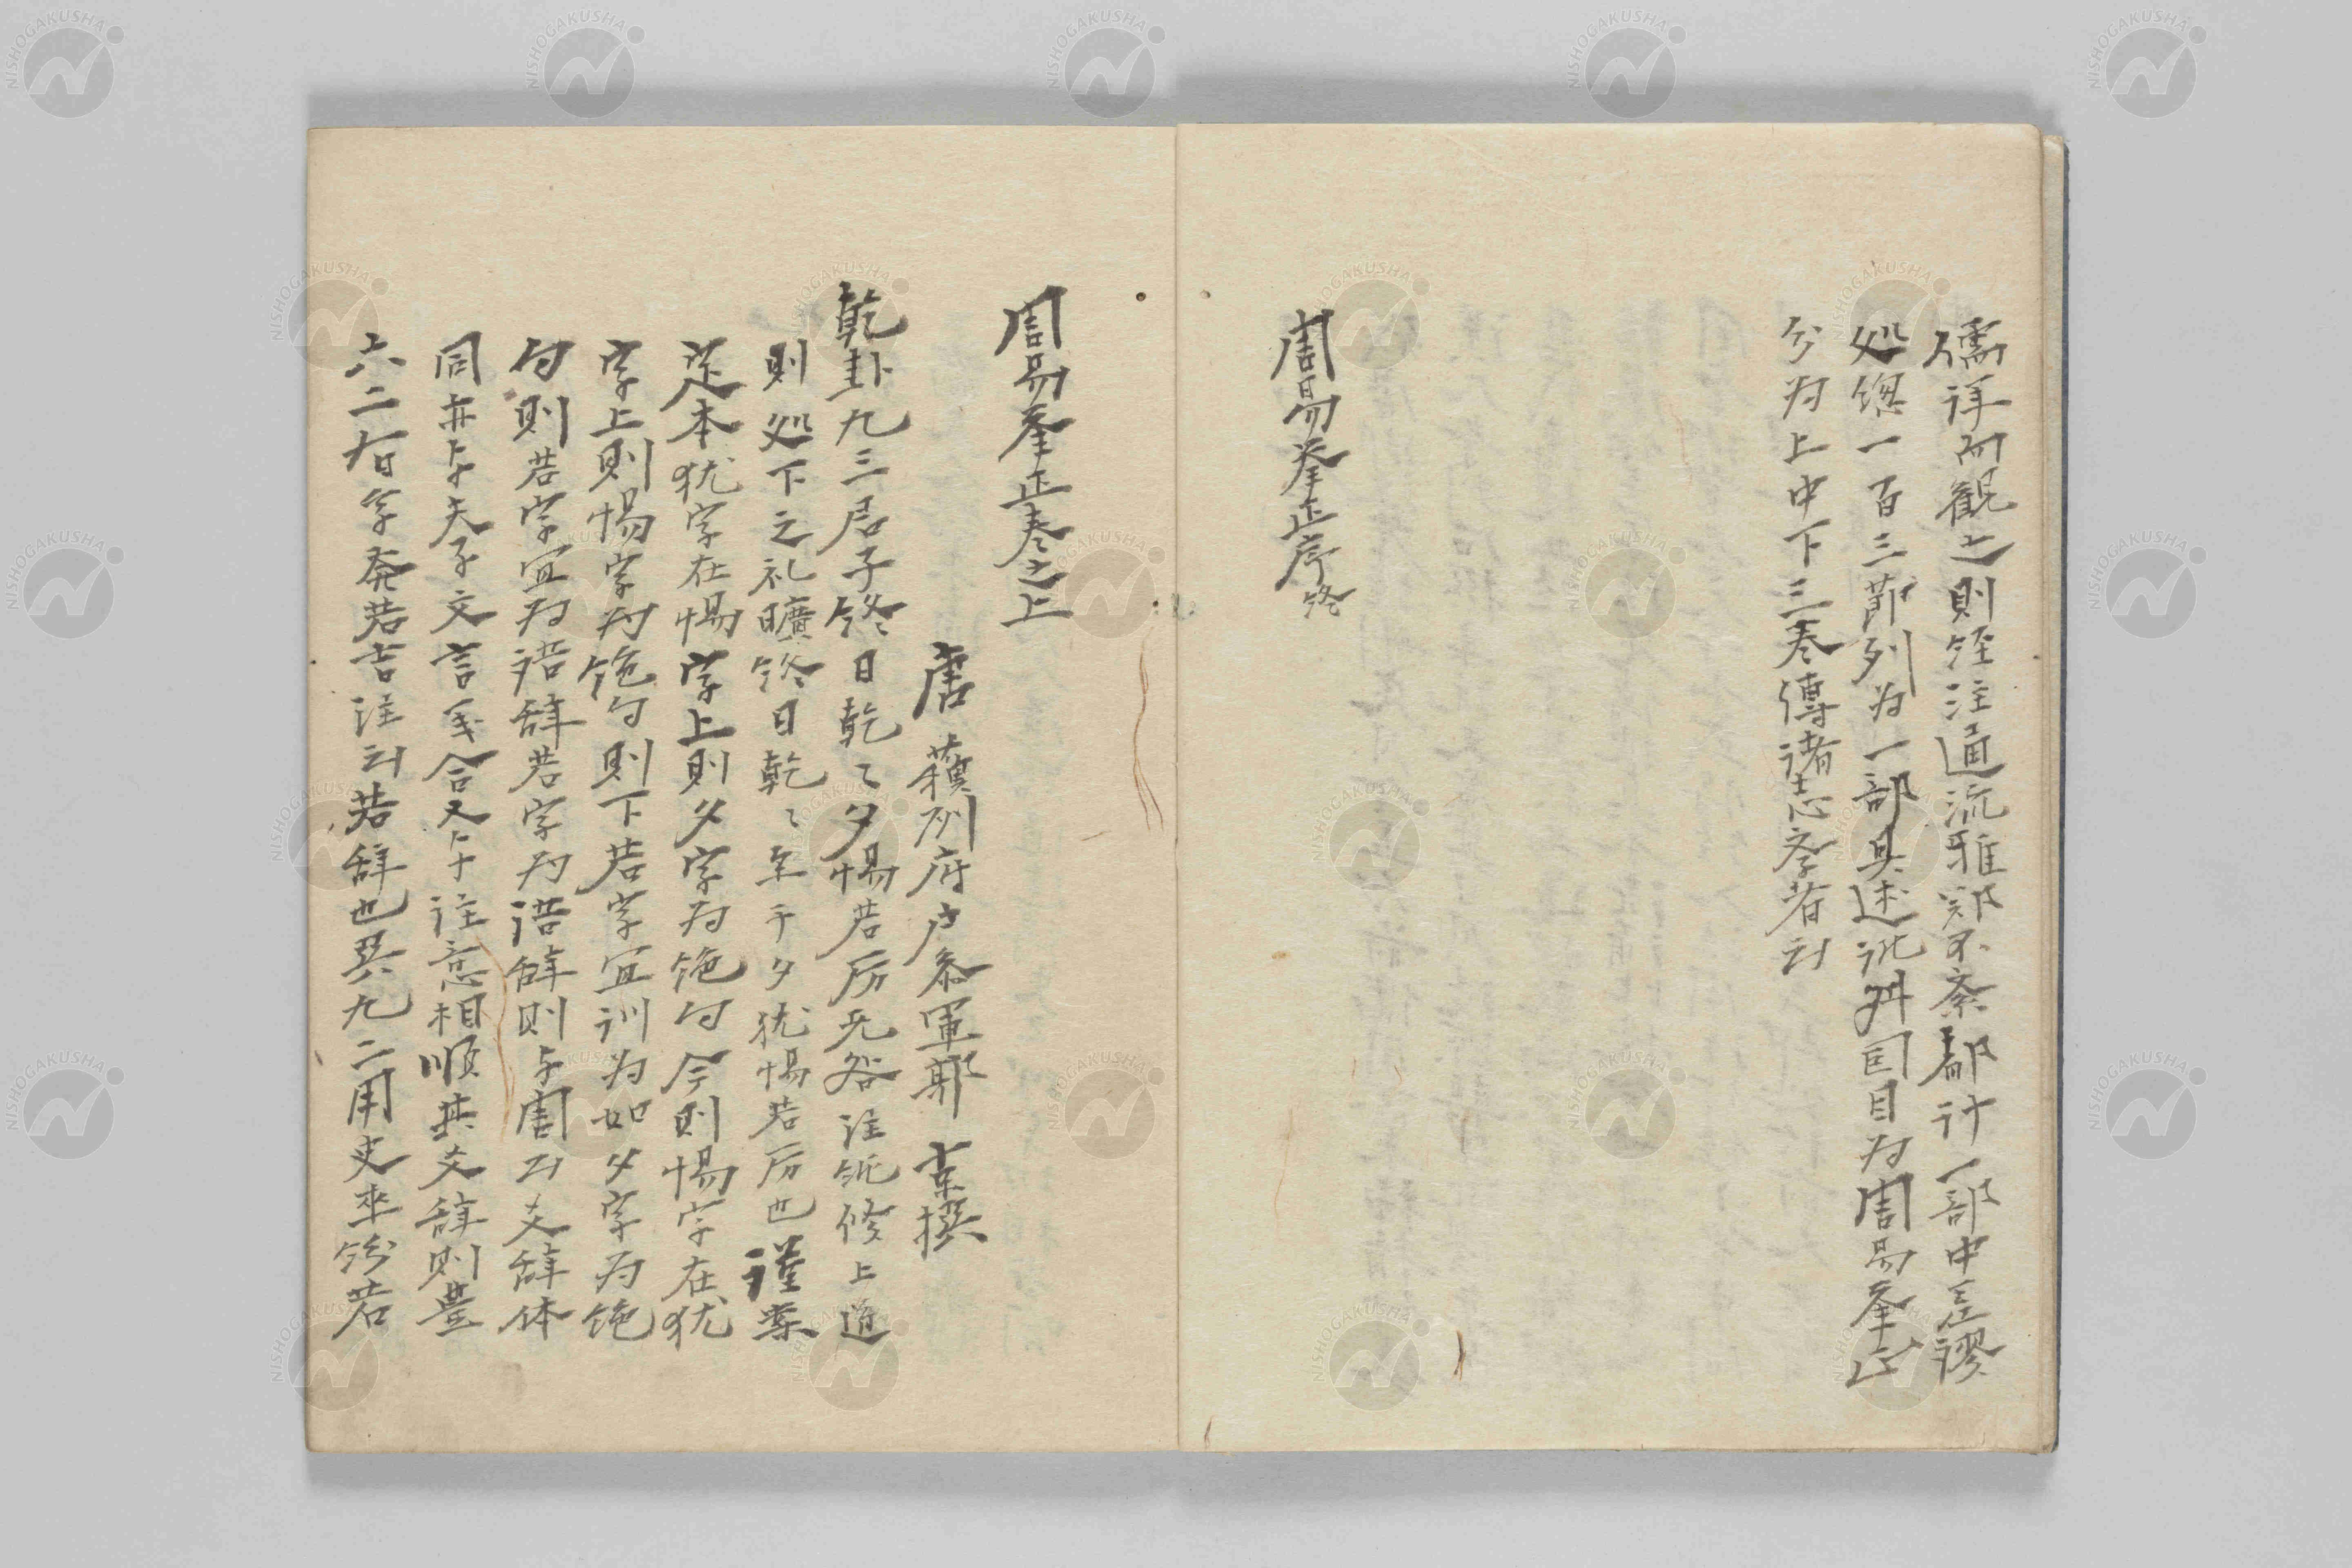 儒詳而觀之則經注通流雅鄭不紊都計一部中差謬
処總一百三莭列為一部具述訛舛囯目為周易挙正
分为上中下三巻傳諸志斈者云
周易挙正序終
周易挙正巻之上
唐 蘓州府户叅軍郭 京撰
乾卦九三君子終日乾〻夕惕若厉无咎注純修上道
則処下之礼曠終日乾〻至于夕犹惕若厉也謹案
定本犹字在惕字上則夕字为絶句今則惕字在犹
字上則惕字为絶句則下若字宜训为如夕字为絶
句則若字宜为語辞若字为語辞則与周公爻辞体
同亦与夫子文言義合又今注意相順其爻辞則豊
六二有孚発若吉注云若辞也巽九二用史巫紛若
NISHOGAKUSHA